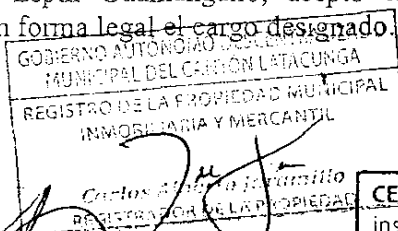 n forma legal el cargo designado.
GOBIERNO AUTÓNOMO
MUNICIPAL DEL CANTÓN LATACUNGA
REGISTRO DE LA PROPIEDAD MUNICIPAL
INMOBILIARIA Y MERCANTIL
Carlos
REGISTRADOR DE LA PROPIEDAD
CE
ins